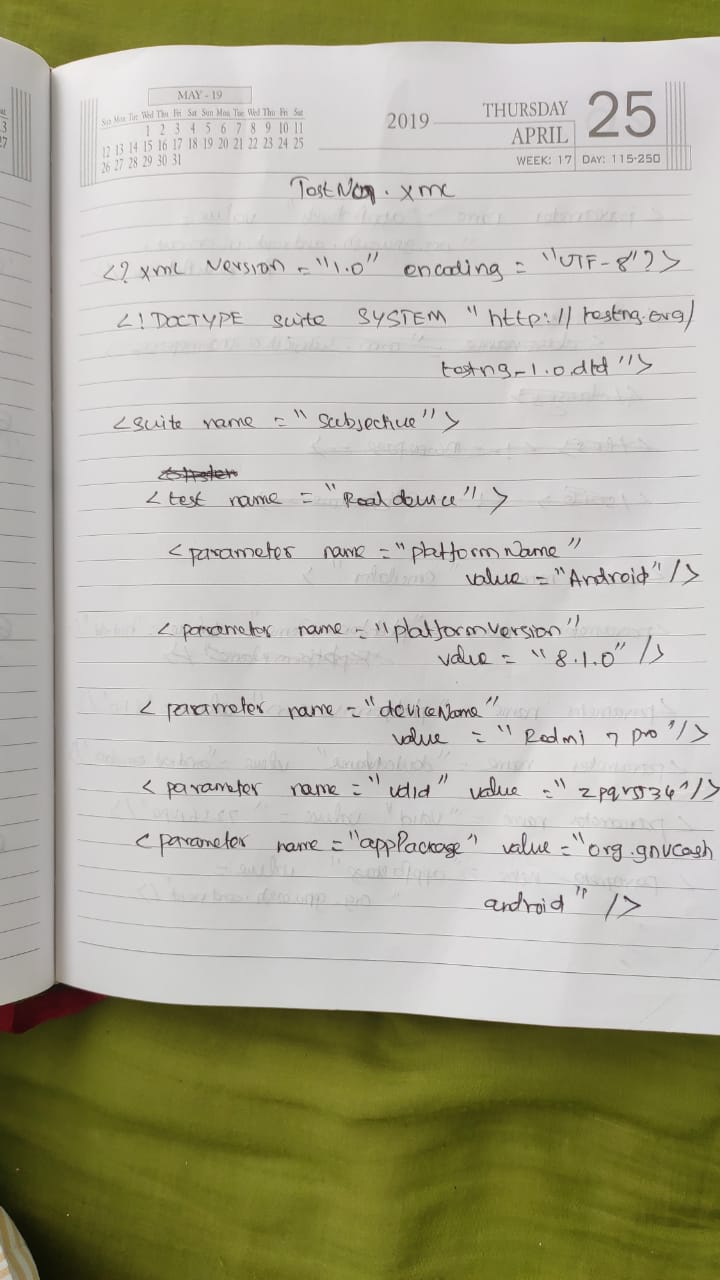 MAY - 19
Sun Mon Tue Wed Thu Fri Sat Sun Mon Tue Wed Thu Fri Sat
1 2 3 4 5 6 7 8 9 10 11
12 13 14 15 16 17 18 19 20 21 22 23 24 25
26 27 28 29 30 31
2019
THURSDAY
APRIL
25
WEEK: 17 DAY: 115-250
TestNG.xml
<? xml version = "1.0" encoding = "UTF-8"?>
<! DOCTYPE suite SYSTEM "http://testng.org/
testng-1.0.dtd">
<suite name = "Subjective">
<test name = "Real device">
<parameter name = "platformName"
value = "Android" />
<parameter name = "platformversion"
value = "8.1.0" />
<parameter name = "deviceName"
value = "Redmi 7 pro"/>
<parameter name = "udid" value = "zpqrs34"/>
<parameter name = "appPackage" value = "org.gnucash
android" />